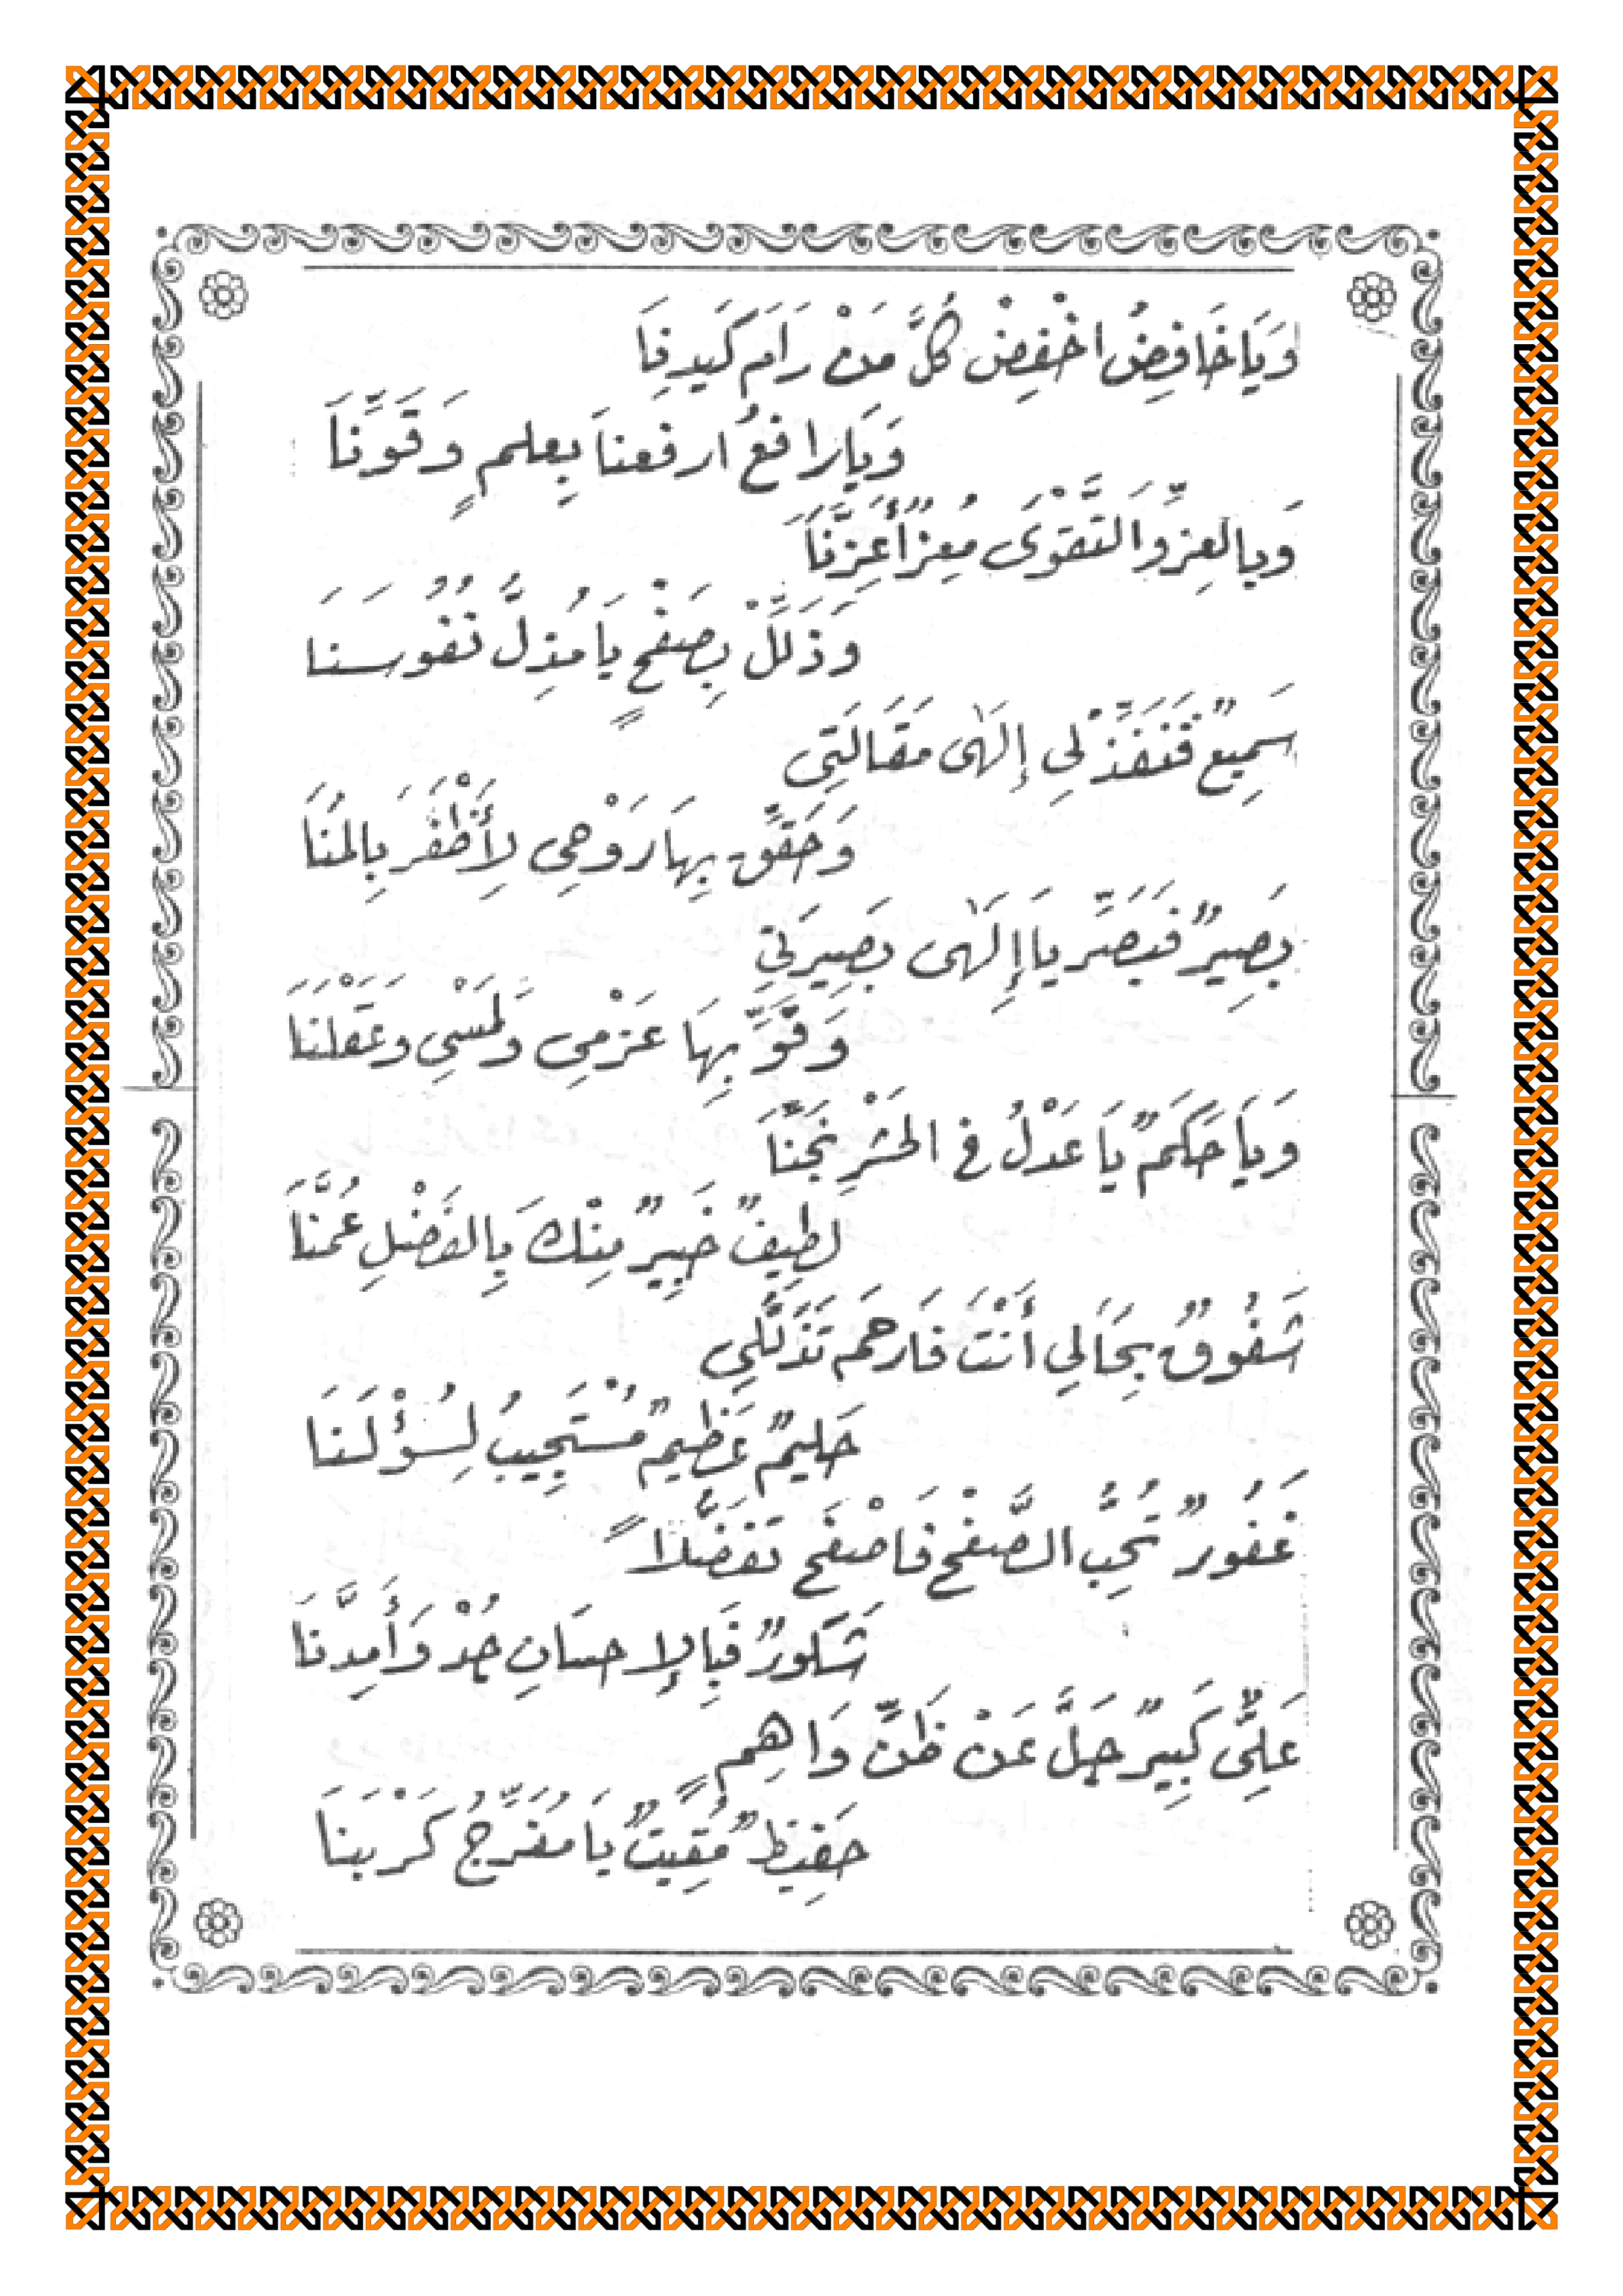 وَيَا خَافِضُ اخْفِضْ كُلَّ مَنْ رَامَ كَيدنِا
وَيَا رافعُ ارفعنا بِعلمٍ وَقَوِّنَا
وَبِالعِزِّ وَالتَّقْوَى مُعِزٌّ أَعِزَّنَا
وَذَلِّلْ بِصَفْحٍ يَا مُذِلُّ نُفُوسَنَا
سَمِيعٌ فَنَفِّذْ لِى إِلَهٰى مَقَالَتِى
وَحَقِّق بِهَا رَوْحِى لِأَظْفَرَ بِالمُنَا
بَصِيرٌ فَبَصِّر يَا إِلَهٰى بَصِيرَتِي
وَقَوِّ بِهَا عَزْمِى وَلَمْسِى وَعَقْلَنَا
وَيَا حَكَمٌ يَا عَدْلُ فِى الحَشْرِ نَجِّنَا
لَطِيفٌ خَبِيرٌ مِنْكَ بِالفَضْلِ عُمَّنَا
شَفُوقٌ بِحَالِي أَنْتَ فَارحَم تَذَلُّلِى
حَلِيمٌ عَظِيمٌ مُسْتَجِيبُ لِسُؤْلَنَا
غَفُورٌ تُحِبُّ الصَّفْحَ فَاصْفَح تَفَضُّلاً
شَكَورٌ فَبِالإِحسَانِ جُدْ وَأَمِدَّنَا
عَلِىٌّ كَبِيرٌ جَلَّ عَنْ ظَنِّ وَاهِمٍ
حَفِيظٌ مُقِيتٌ يَا مُفَرِّجُ كَرْبَنَا